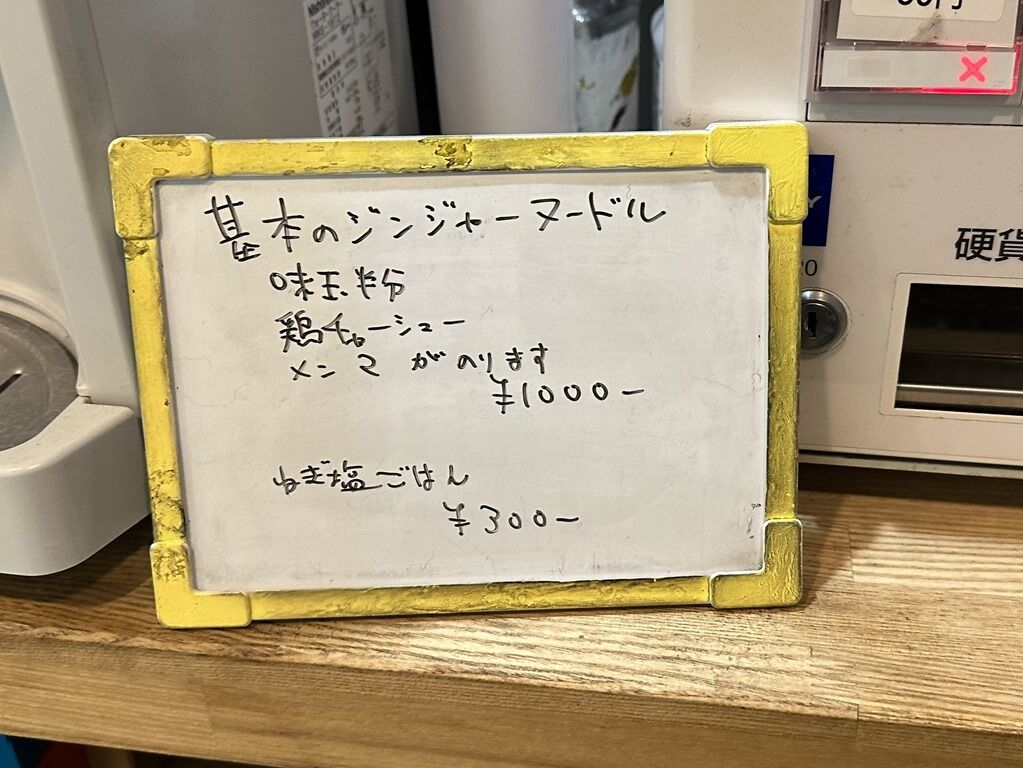 基本のジンジャーヌードル
味玉半分
鶏チャーシュー
メンマがのります
¥1000-
ねぎ塩ごはん
¥300-
硬貨